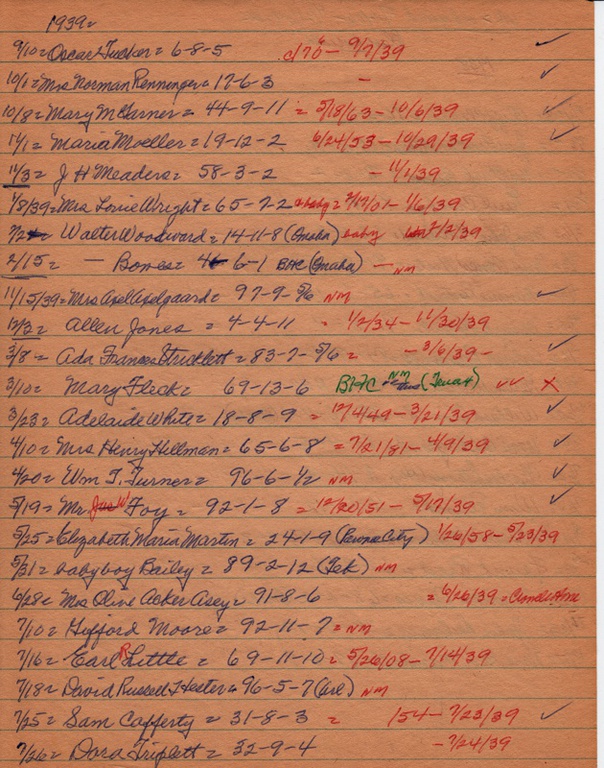 1939=
9/10= Oscar Tucker = 6-8-5 c/70 - 9/7/39 ✓
10/1= Mrs Norman Renninger= 17-6-3 - ✓
10/8= Mary McGarner = 44-9-11 = 5/18/63-10/6/39 ✓
11/1= Maria Moeller = 19-12-2 6/24/53-10/29/39 ✓
11/3= J H Meaders= 58-3-2 - 11/1/39
1/8/39= Mrs Lovie Wright= 65-7-2 - 1/6/39
Walter Woodward= 14-11-8 (Omaha) baby 2/2/39
2/15= - Bones= 6-1 (Omaha) - NM
11/15/39= Mrs Axel Axelgaard= 97-9-5/6 NM ✓
12/3= Allen Jones = 4-4-11 = 1/2/34-11/30/39
3/8= Ada Frances Stricklett= 83-7-5/6 = -3/6/39- ✓
3/10= Mary Fleck= 69-13-6 NM (Texas) ✓✓ X
3/23= Adelaide White= 18-8-9 = 12/4/49-3/21/39 ✓
4/10= Mrs Henry Hillman= 65-6-8 = 7/21/81-4/9/39 ✓
4/20= Wm T. Turner= 96-6-1/2 NM ✓
5/19= Mr Jas W Foy= 92-1-8 = 12/20/51-5/17/39 ✓
5/25= Elizabeth Maria Martin= 24-1-9 (Pawnee City) 1/26/58-5/23/39
5/31= baby boy Bailey= 89-2-12 (Tek) NM
6/28= Mrs Olive Acker Asey= 91-8-6 = 6/26/39 =
7/10= Gifford Moore= 92-11-7 = NM
7/16= Earl R Little = 69-11-10= 5/26/08-7/14/39
7/18= David Russed Hester= 96-5-7 NM
7/25= Sam Cafferty= 31-8-3 = /54-7/23/39 ✓
7/26= Dora Triplett= 32-9-4 -7/24/39